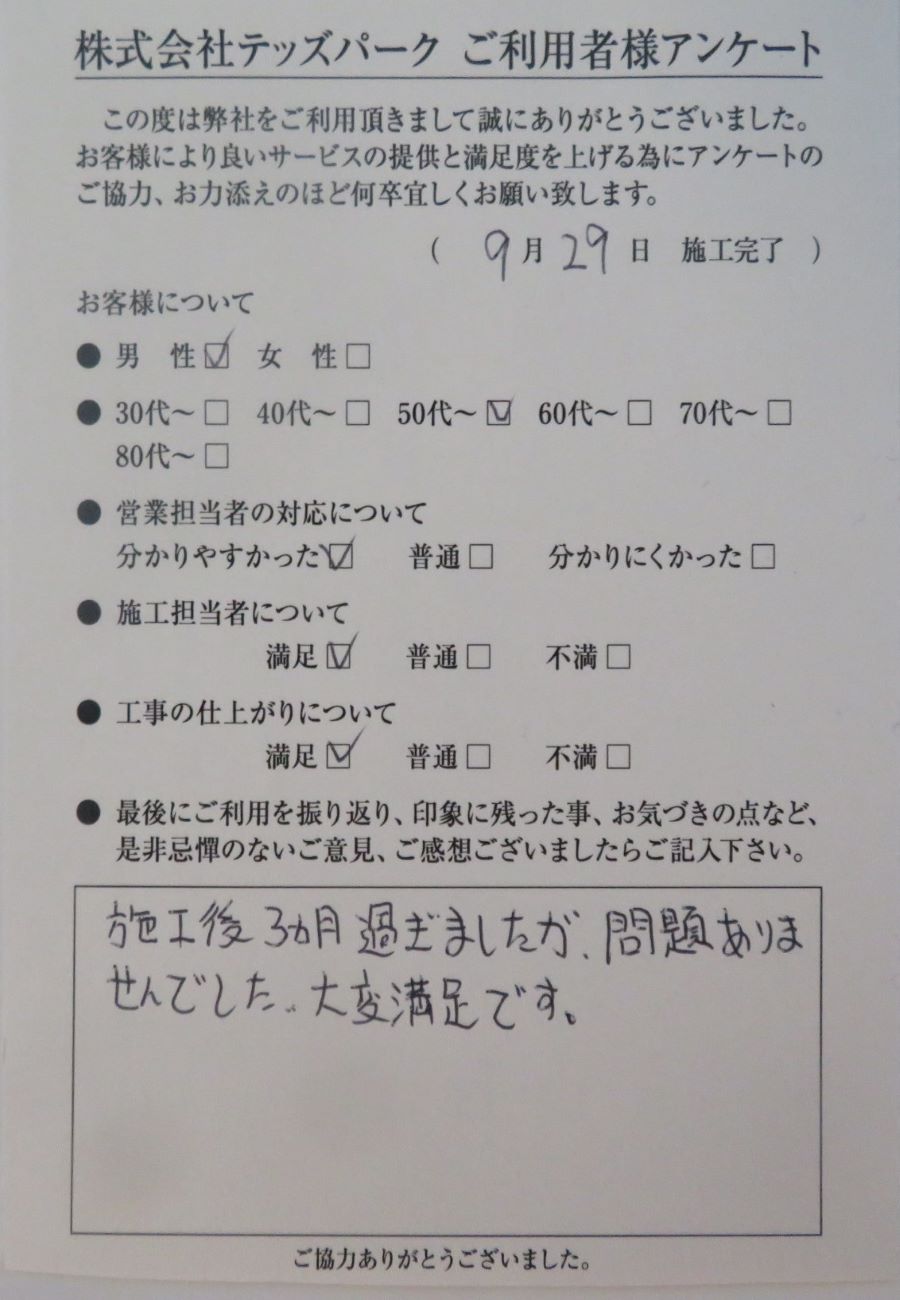 株式会社テッズパーク ご利用者様アンケート
この度は弊社をご利用頂きまして誠にありがとうございました。
お客様により良いサービスの提供と満足度を上げる為にアンケートの
ご協力、お力添えのほど何卒宜しくお願い致します。
( 9月29日 施工完了 )
お客様について
● 男 性☑ 女 性□
● 30代〜□ 40代〜□ 50代〜☑ 60代〜□ 70代〜□
80代〜□
● 営業担当者の対応について
分かりやすかった☑ 普通□ 分かりにくかった□
● 施工担当者について
満足☑ 普通□ 不満□
● 工事の仕上がりについて
満足☑ 普通□ 不満□
● 最後にご利用を振り返り、印象に残った事、お気づきの点など、
是非忌憚のないご意見、ご感想ございましたらご記入下さい。
施工後3ヵ月過ぎましたが、問題ありま
せんでした。大変満足です。
ご協力ありがとうございました。